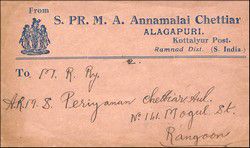 From
S. PR. M. A. Annamalai Chettiar
ALAGAPURI.
Kottaiyur Post.
Ramnad Dist. (S. India)
To M. R. Ry.
S. Periyanan Chettiar Avl.
No 141. Mogul St.
Rangoon